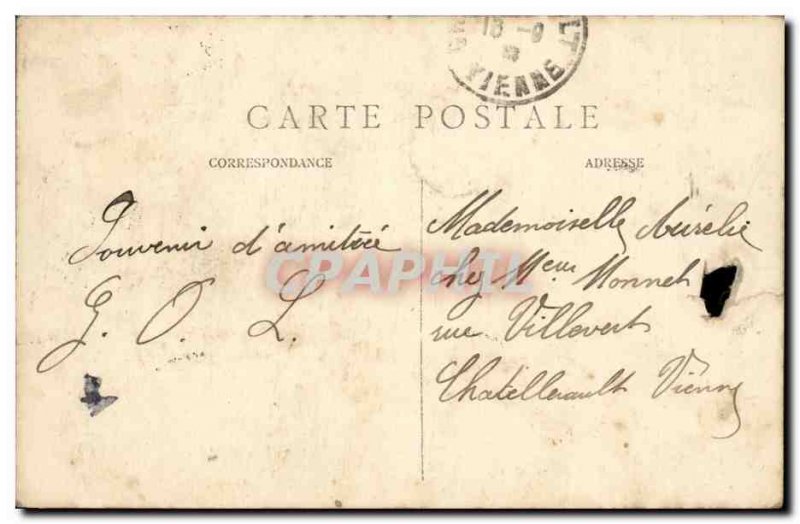 18 -9
LT
VIENNE
CARTE POSTALE
CORRESPONDANCE
ADRESSE
Souvenir d'amitiée
G. O. L.
Mademoiselle Aurélie
chez Meur Monnet
rue Villevert
Chatellerault Vienne
CPAPHIL.com